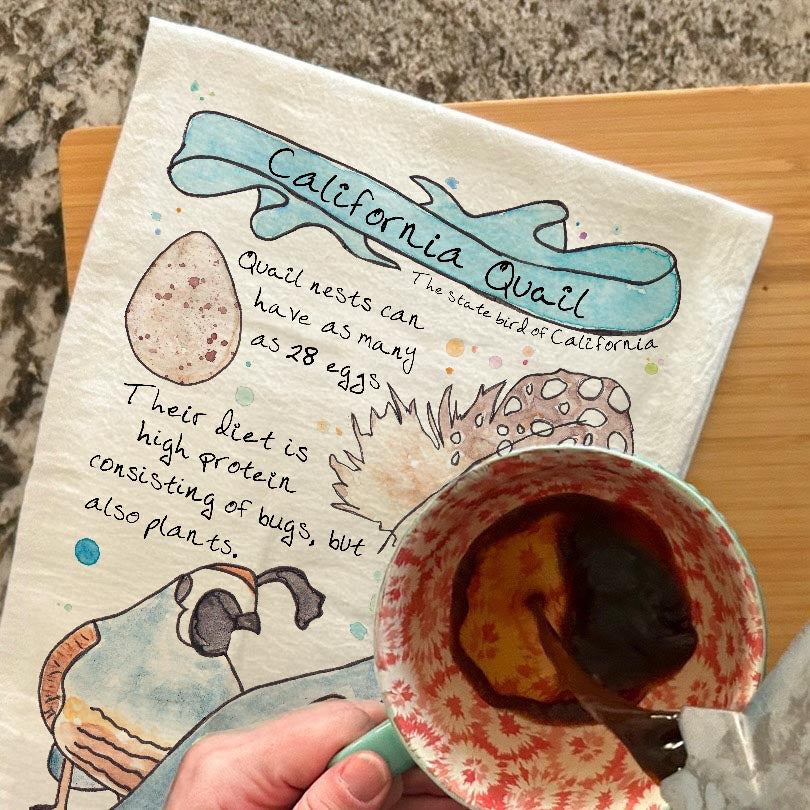 California Quail
The state bird of California
Quail nests can
have as many
as 28 eggs
Their diet is
high protein
consisting of bugs, but
also plants.